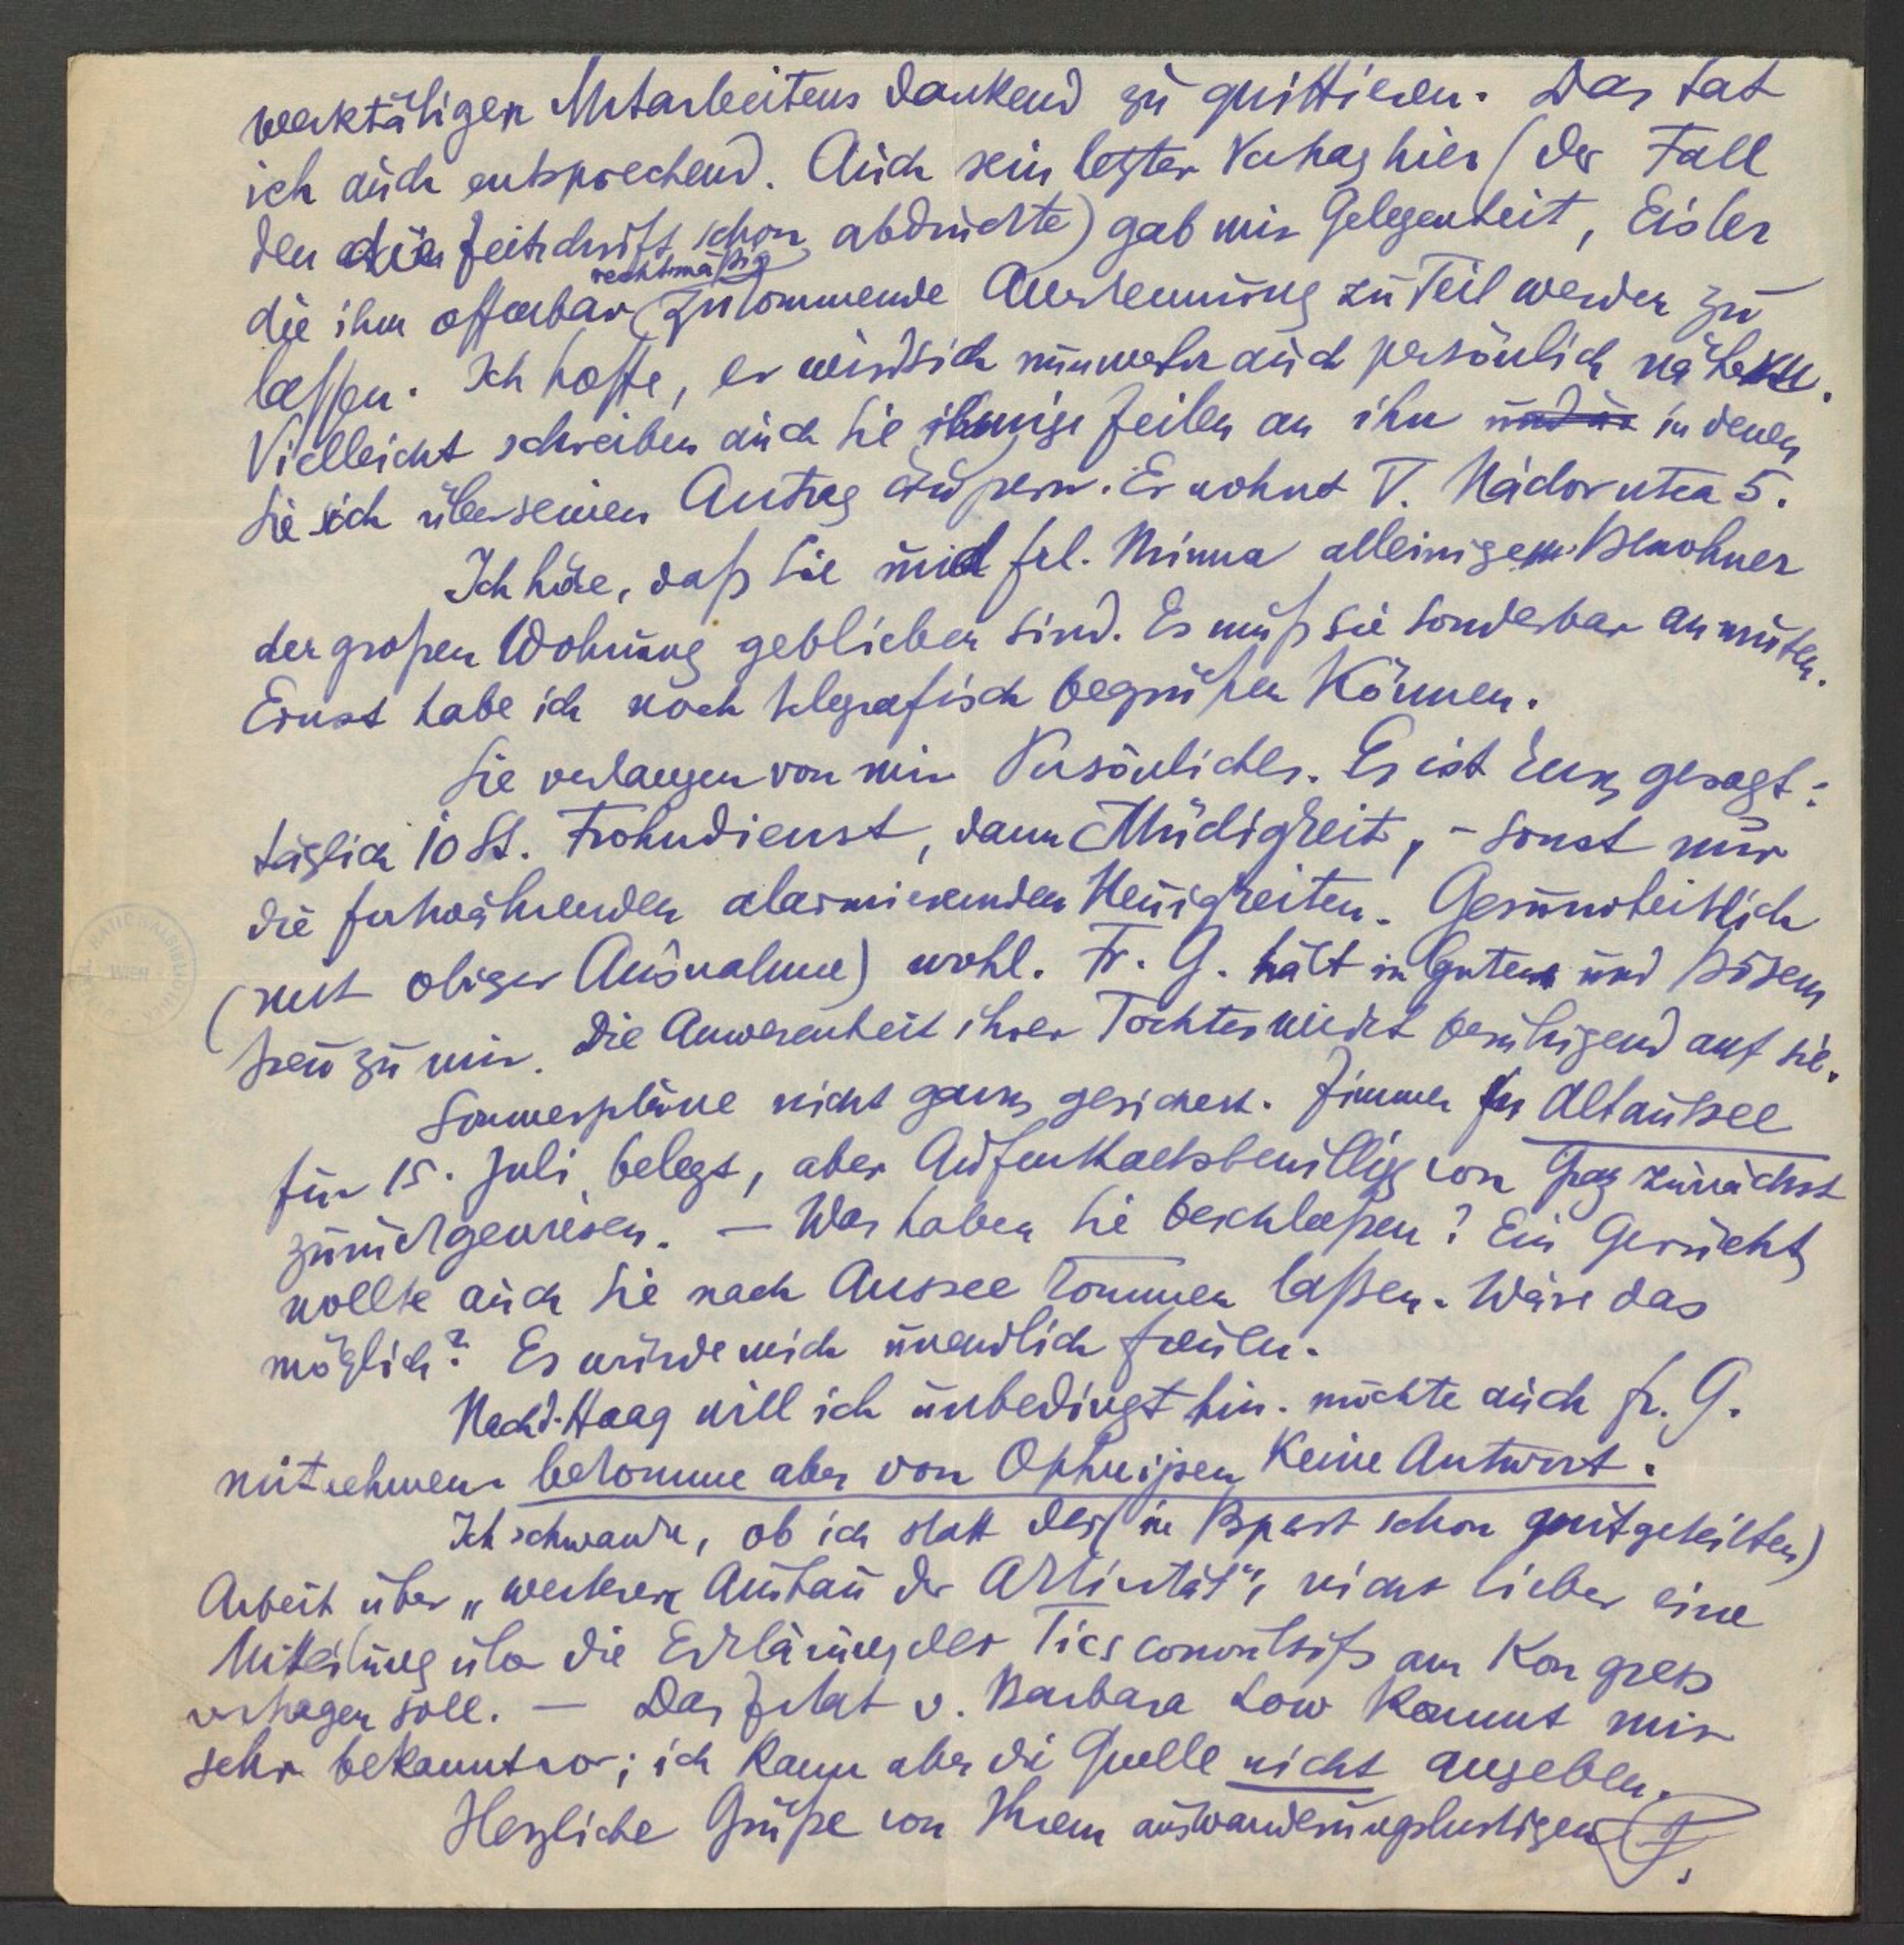 werktätigen Mitarbeitens dankend zu quittieren. Das tat
ich auch entsprechend. Auch sein letzter Vortrag hier (der Fall
den die Zeitschrift schon abdruckte) gab mir Gelegenheit, Eisler
rechtmäßig
die ihm offenbar zukommende Anerkennung zu Teil werden zu
lassen. Ich hoffe, er wird sich nunmehr auch persönlich nähern.
Vielleicht schreiben auch Sie einige Zeilen an ihn in denen
Sie sich über seinen Antrag äußern. Er wohnt V. Nádor utca 5.
Ich höre, daß Sie mit Frl. Minna alleinige Bewohner
der großen Wohnung geblieben sind. Es muß Sie sonderbar anmuten.
Ernst habe ich noch telegrafisch begrüßen können.
Sie verlangen von mir Persönliches. Es ist kurz gesagt:
täglich 10 St. Frohndienst, dann Müdigkeit, – sonst nur
die fortwährenden alarmierenden Neuigkeiten. Gesundheitlich
(mit obiger Ausnahme) wohl. Fr. G. hält in Gutem und Bösem
treu zu mir. Die Anwesenheit ihrer Tochter wirkt beruhigend auf sie.
Sommerpläne nicht ganz gesichert. Zimmer in Altaussee
für 15. Juli belegt, aber Aufenthaltsbewillig von Graz zunächst
zurückgewiesen. – Was haben Sie beschloßen? Ein Gerücht
wollte auch Sie nach Aussee kommen laßen. Wäre das
möglich? Es würde mich unendlich freuen.
Nach d. Haag will ich unbedingt hin. möchte auch Fr. G.
mitnehmen bekomme aber von Ophuijsen keine Antwort.
Ich schwanke, ob ich statt der (in Bpest schon mitgeteilten)
Arbeit über „weiteren Ausbau der Aktivität", nicht lieber eine
Mitteilung über die Erklärung des Tics convulsifs am Kongress
vortragen soll. – Das Zitat v. Barbara Low kommt mir
sehr bekannt vor; ich kann aber die Quelle nicht angeben.
Herzliche Grüße von Ihrem auswanderungslustigen F.